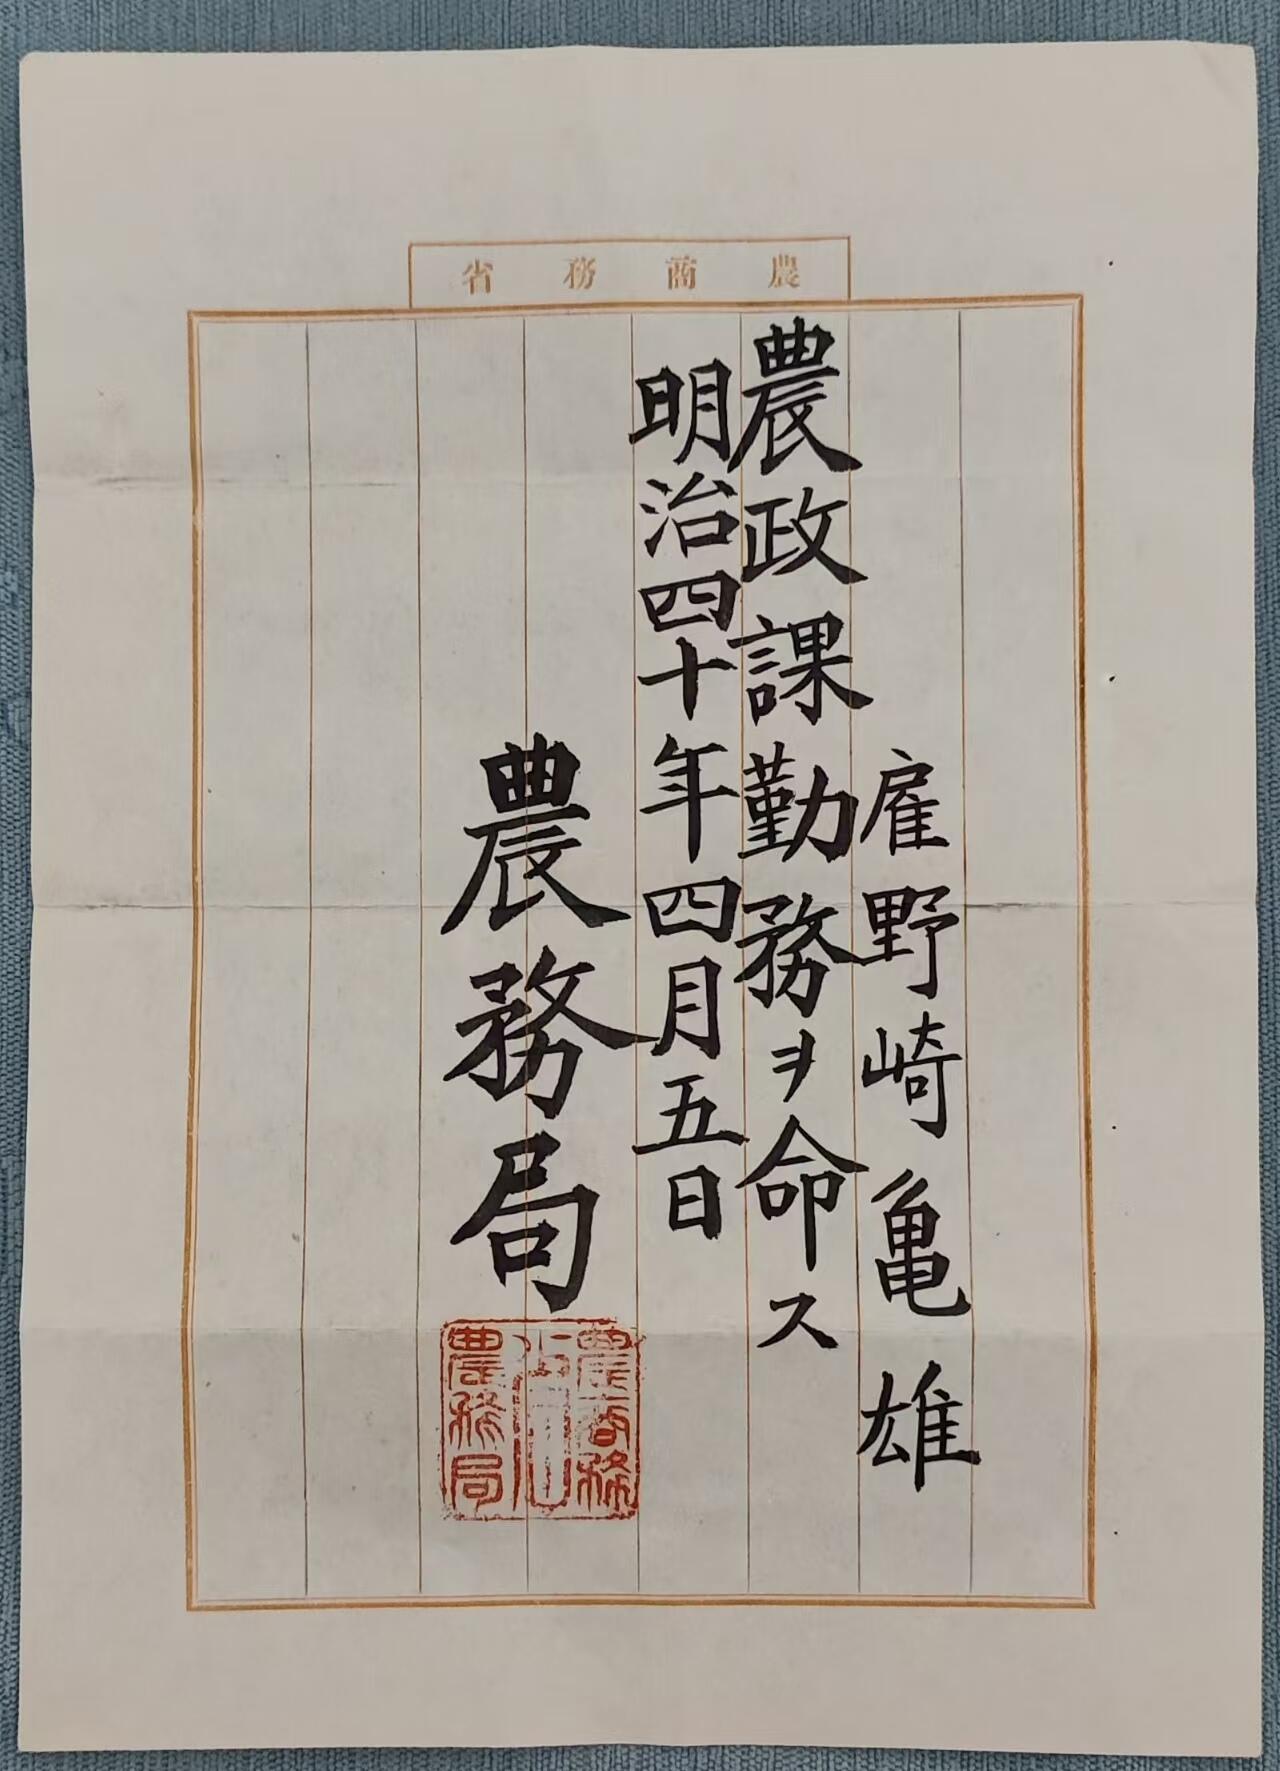 農商務省
雇野崎亀雄
農政課勤務ヲ命ス
明治四十年四月五日
農務局
農商務
省
農務局